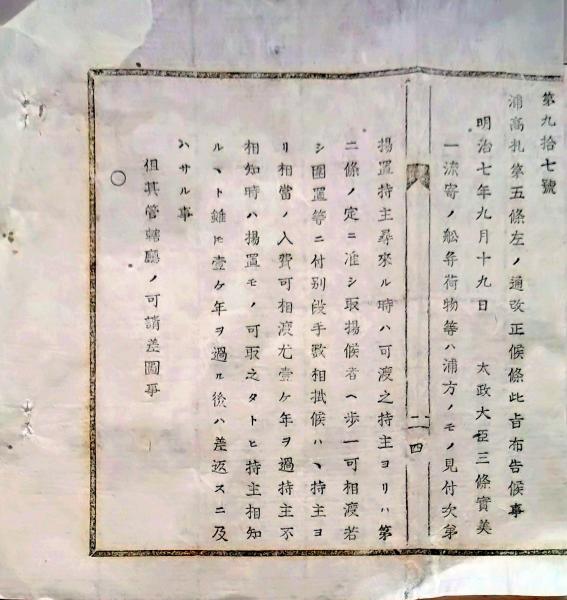 第九拾七號
浦高札第五條左ノ通改正候條此旨布告候事
明治七年九月十九日　太政大臣三條實美
一流寄ノ舩幷荷物等ハ浦方ノモノ見付次第
二ノ四
揚置持主尋來ル時ハ可渡之持主ヨリハ第
二條ノ定ニ准シ取揚候者ヘ歩一可相渡若
シ圍置等ニ付別段手數相拭候ハヽ持主ヨ
リ相當ノ入費可相渡尤壹ケ年ヲ過持主不
相知時ハ揚置モノ可取之タトヒ持主相知
ルヽト雖ㇳ壹ケ年ヲ過ル後ハ差返スニ及
ハサル事
但其管轄廳ノ可請差圖事
○